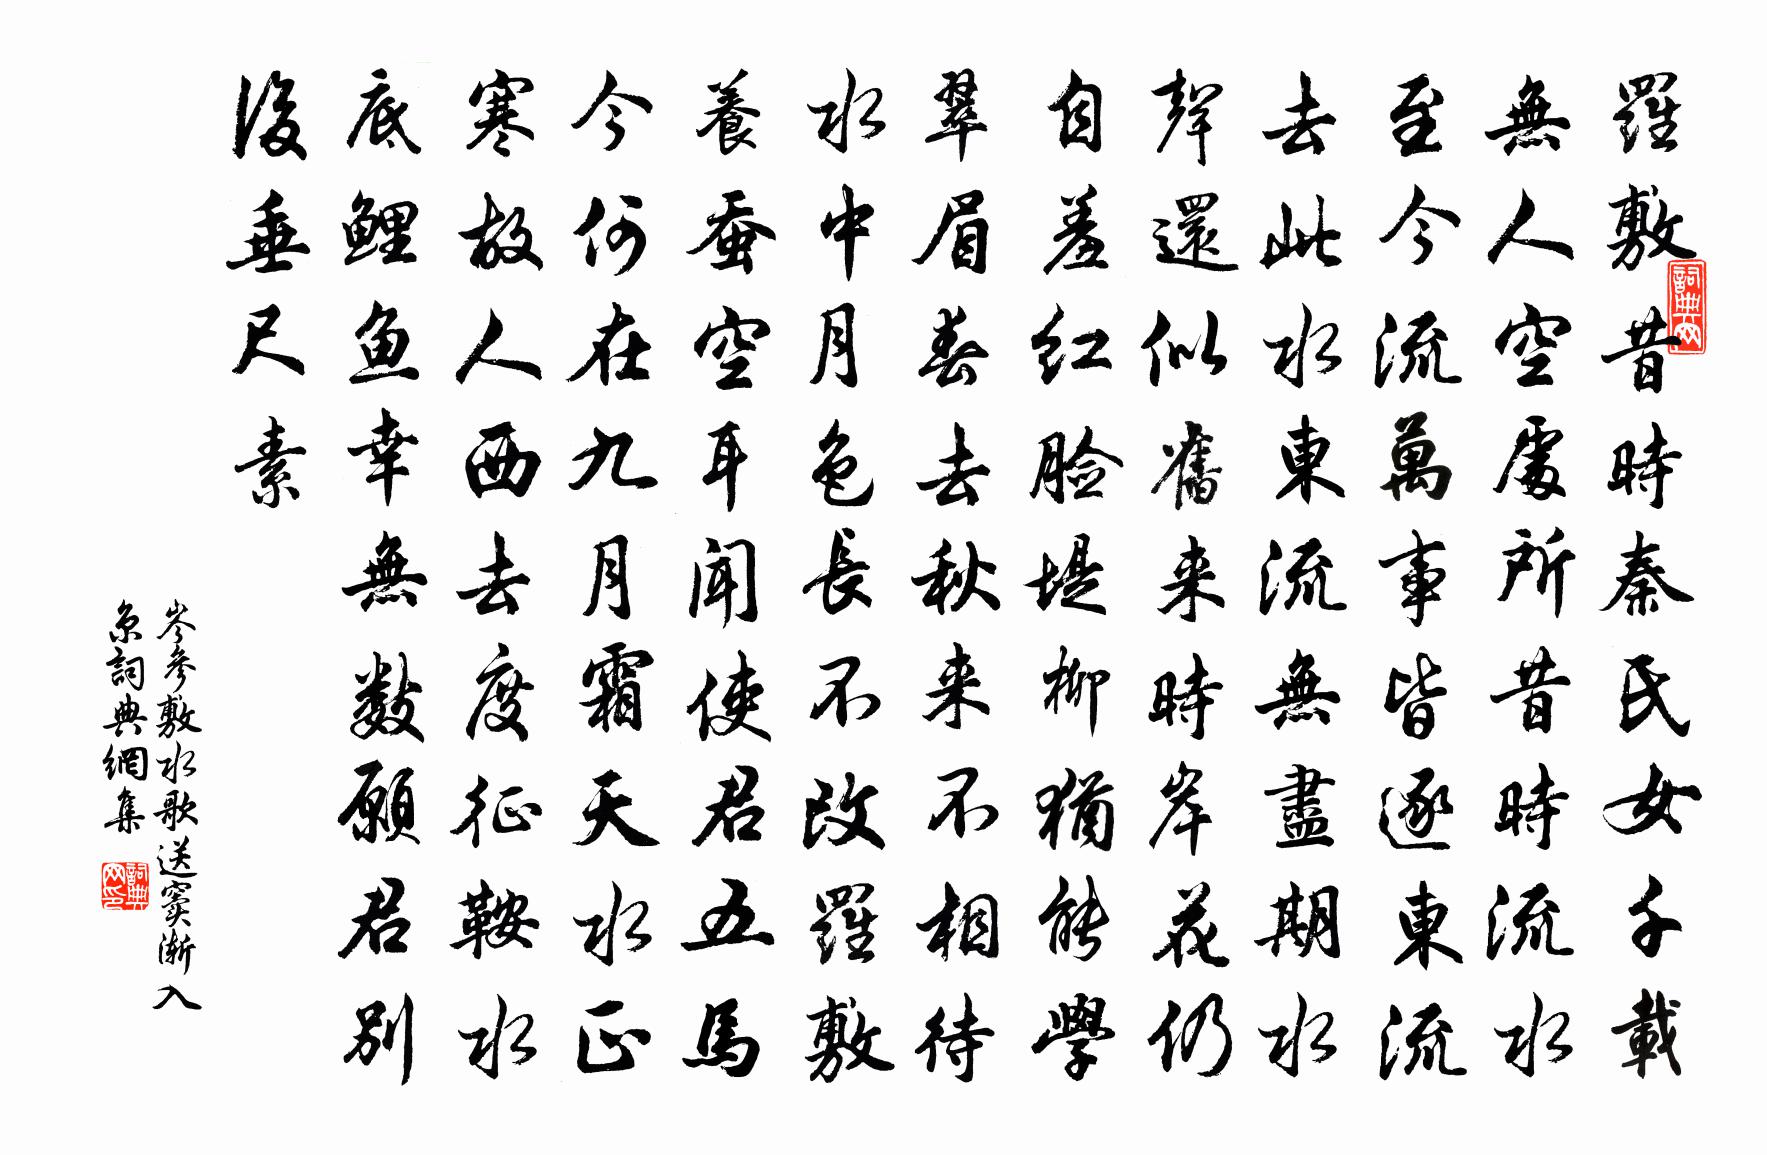 羅敷昔時秦氏女千載
無人空處所昔時流水
至今流萬事皆逐東流
去此水東流無盡期水
聲還似舊来時岸花仍
自羞紅脸堤柳猶能學
翠眉春去秋来不相待
水中月色長不改羅敷
養蚕空耳闻使君五馬
今何在九月霜天水正
寒故人西去度征鞍水
底鲤鱼幸無数願君别
後垂尺素
岑參敷水歌送窦渐入
京詞典網集
詞典网
詞典网印